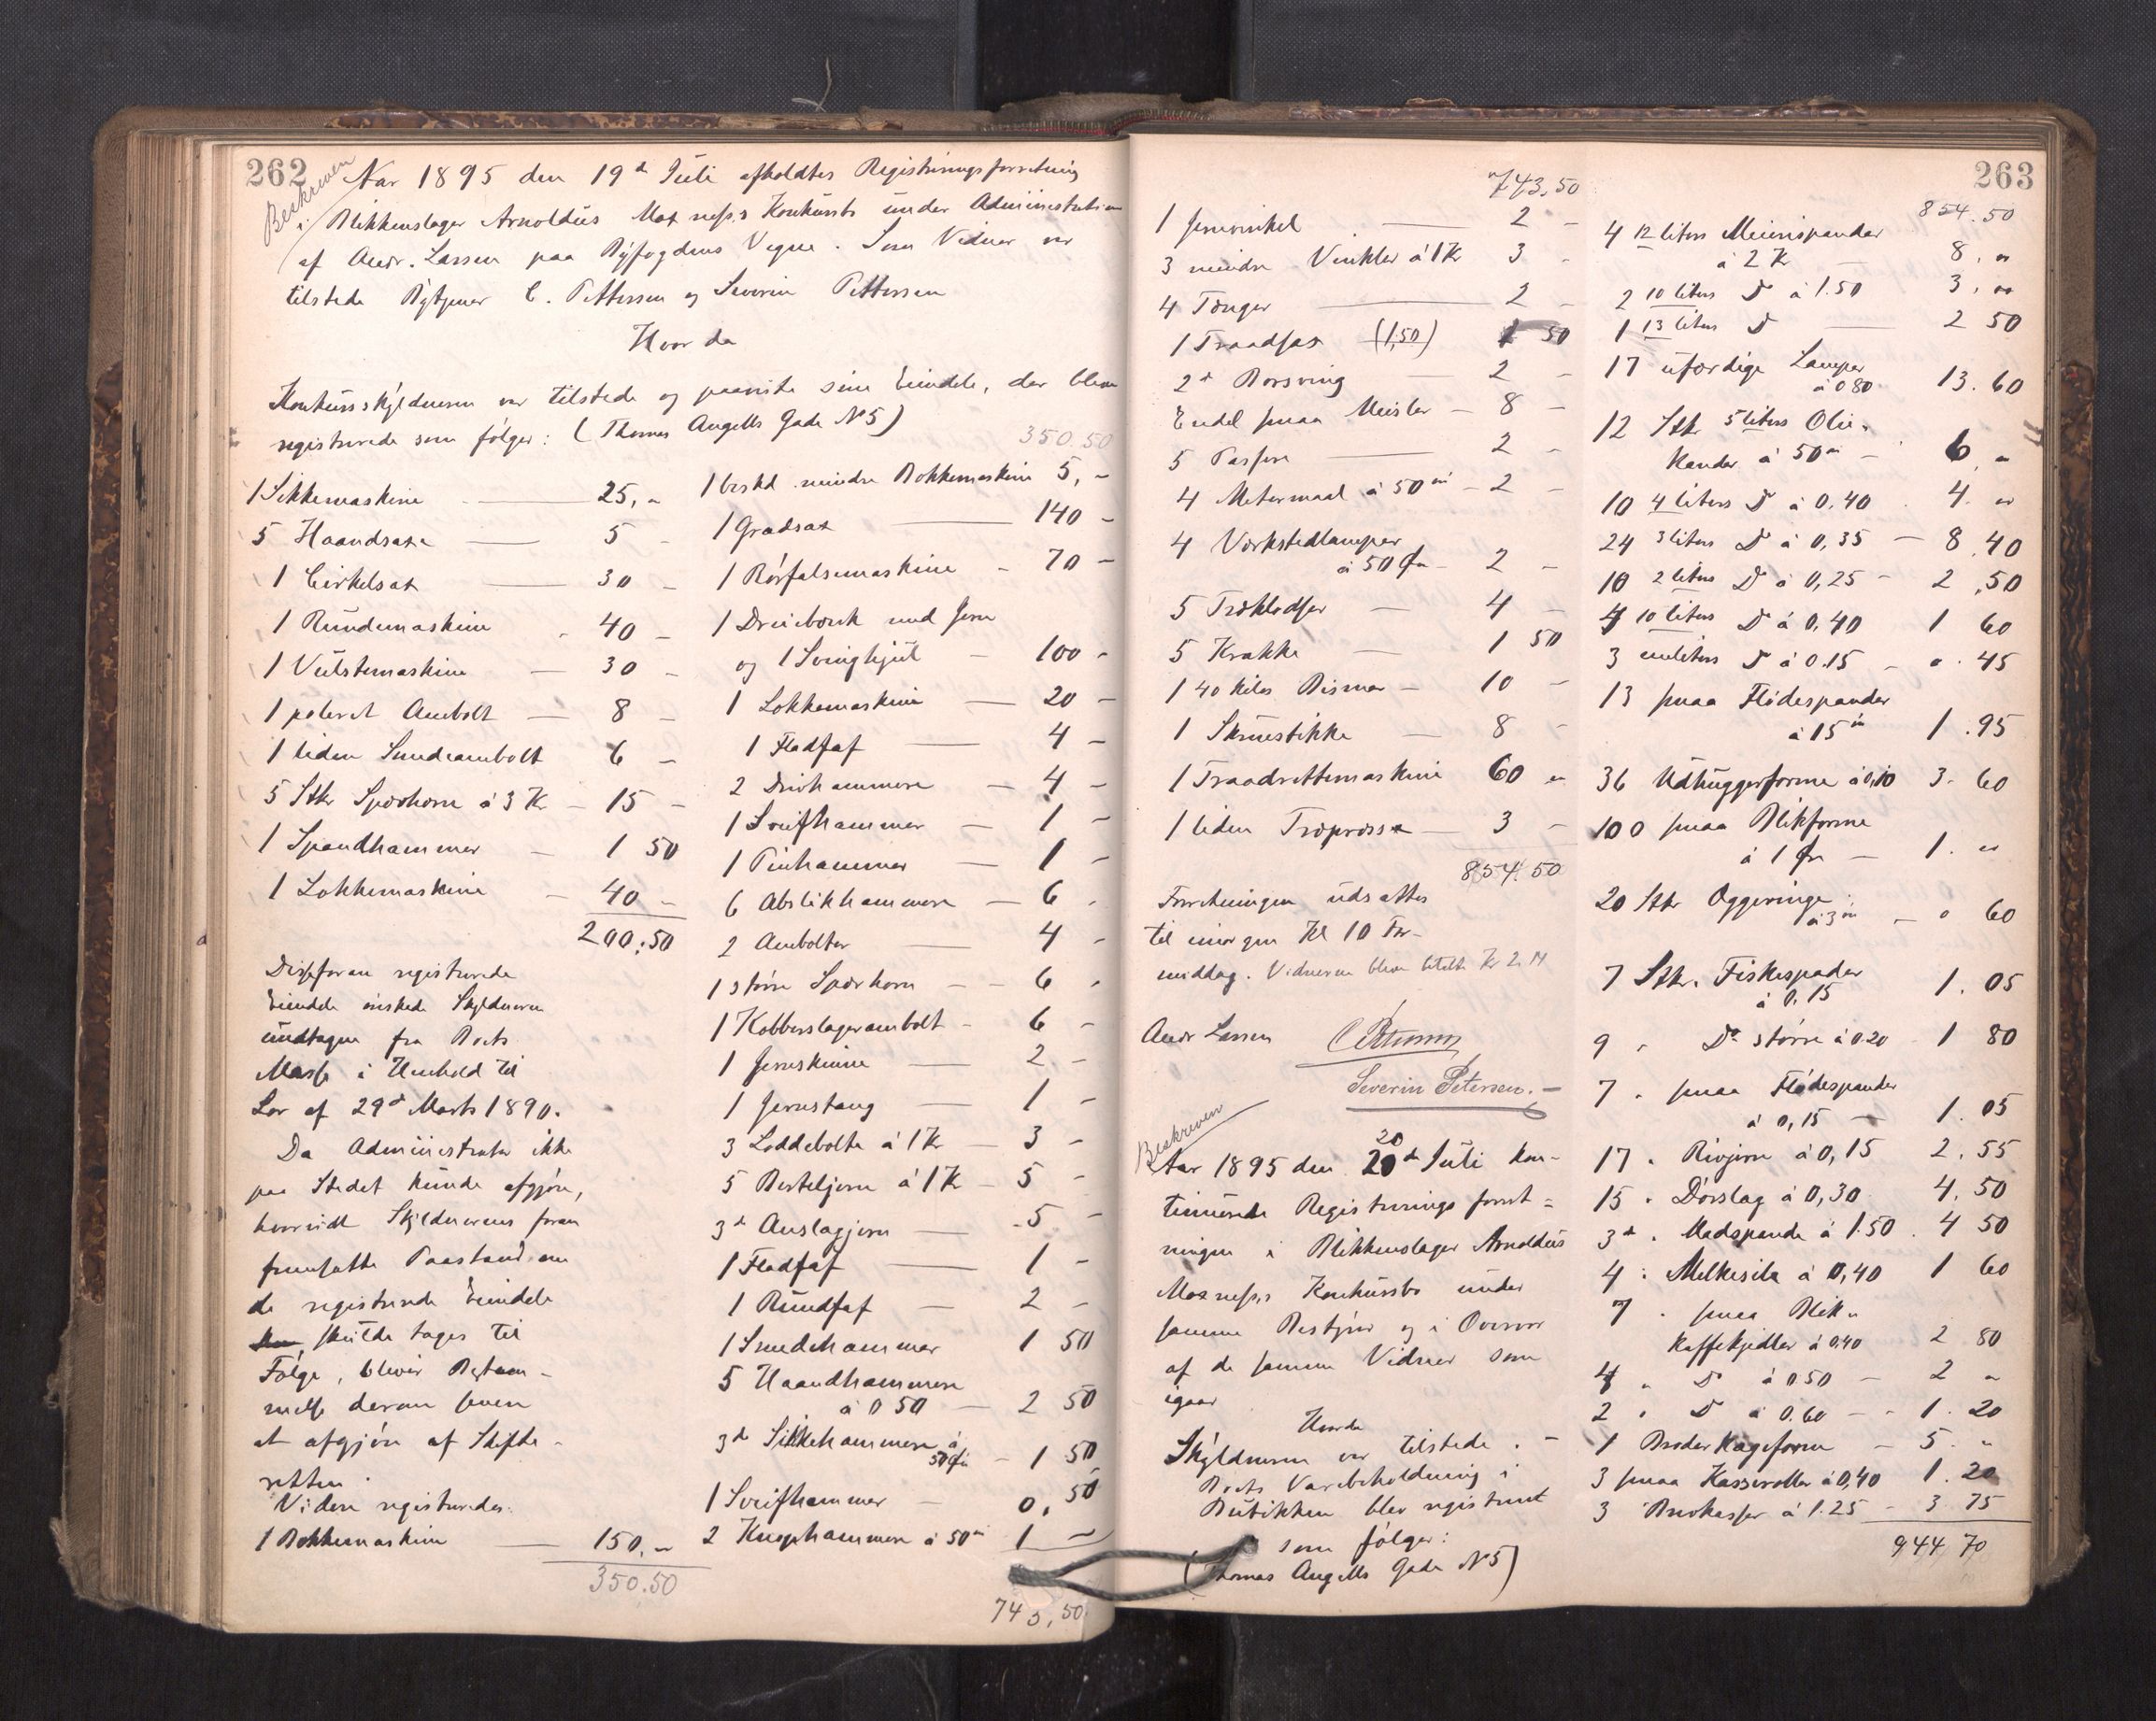 262
Beskreven
Aar 1895 den 19d Juli afholdtes Registreringsforretning
i Blikkenslager Arnoldus Moxness's Konkursbo under Administration
af Andr. Larsen paa Byfogdens Vegne. Som Vidner var
tilstede Bytjener C. Pettersen og Severin Pettersen
Hvorda
Konkursskyldneren var tilstede og paaviste sine Eiendele, der bleve
registrerede som følger: (Thomas Angells Gade No 5)
1 Sikkemaskine 25,-
5 Haandsaxe 5 -
1 Cirkelsax 30 -
1 Rundemaskine 40 -
1 Vulstemaskine 30 -
1 poleret Ambolt 8 -
1 liden Smedeambolt 6 -
5 Stkr Spærhorn á 3 Kr 15 -
1 Spandhammer 1 50
1 Lokkemaskine 40 -
200.50
Disseforan registrerede
Eiendele ønskede Skyldneren
undtagne fra Boets
Masse i Henhold til
Lov af 29d Marts 1890.
Da Administrator ikke
paa Stedet kunde afgjøre,
hvorvidt Skyldnerens foran
fremsatte Paastand om
de registrerede Eiendele
skulde tages til
Følge, bliver Bestem-
melse derom senere
at afgjøre af Skifte-
retten.
Videre registreredes:
1 Bokkemaskine 150.-
350.50
350.50
1 beskd mindre Bokkemaskine 5,-
1 Gradsax 140 -
1 Rørfalsemaskine 70 -
1 Dreiebænk med Jern
og 1 Svinghjul 100 -
1 Lokkemaskine 20 -
1 Fladfaf 4 -
2 Drivhammere 4 -
1 Sveifhammer 1 -
1 Pinhammer 1 -
6 Abslikhammere 6 -
2 Ambolter 4 -
1 større Spærhorn 6 -
1 Kobberslagerambolt 6 -
1 Jernskinne 2 -
1 Jernstang 1 -
3 Loddebolte á 1 Kr 3 -
5 Berteljern á 1 Kr 5 -
3d Anslagjern 5 -
1 Fladfaf 1 -
1 Rundfaf 2 -
1 Smedehammer 1 50
5 Haandhammere
á 0 50 2 50
3d Sikkehammere á
50 Øre 1 50
1 Sveifhammer 0,50
2 Knophammere á 50 ø 1 -
743,50
263
743,50
1 Jernvinkel 2 -
3 mindre Vinkler á 1 Kr 3 -
4 Tænger 2 -
1 Traadsax (1,50) 1 50
2d Borsving 2 -
Endel smaa Meisler 8 -
5 Passere 2 -
4 Metermaal á 50 ø 2 -
4 Værkstedlamper
á 50 Øre 2 -
5 Træklodser 4 -
5 Krakke 1 50
1 40 kilos Bismer 10 -
1 Skruestikke 8 -
1 Traadrettemaskine 60 -
1 liden Træpresse 3 -
854.50
Forretningen udsattes
til imorgen Kl 10 For-
middag. Vidnerne bleve betalt Kr 2.14
Andr Larsen C Pettersen
Severin Petersen.
Beskreven
20
Aar 1895 den 20d Juli kon-
tinuerede Registrerings forret=
ningen i Blikkenslager Arnoldus
Moxness's Konkursbo under
samme Bestyrer og i Overvær
af de samme Vidner som
igaar
Hvorda
Skyldneren var tilstede. -
Boets Varebeholdning i
Butikken blev registreret
som følger:
(Thomas Angells Gade No 5)
854.50
4 12 liters Meierispander
á 2 Kr 8,-
2 10 liters Do á 1.50 3,-
1 13 liters Do 2 50
17 ufærdige Lamper
á 0 80 13.60
12 Stkr 5 liters Olie-
kander á 50 ø 6,-
10 4 liters Do á 0.40 4.-
24 3 liters Do á 0,35 8.40
10 2 liters Do á 0,25 2.50
4 10 liters Do á 0,40 1 60
3 enliters Do á 0.15 - . 45
13 smaa Flødespander
á 15 ø 1.95
36 Udhuggerforme á 0,10 3.60
100 smaa Blikforme
á 1 Øre 1.-
20 Stkr Æggeringe
á 3 ø 0 60
7 Stkr. Fiskespader
á 0.15 1.05
9 " Do større á 0.20 1 80
7 " smaa Flødespander
á 0,15 1.05
17 " Rivjern á 0,15 2.55
15 " Dørslag á 0,30 4.50
3d " Madspande á 1.50 4 50
4 " Melkesile á 0,40 1 60
7 " smaa Blik-
kaffekjedler á 0.40 2 80
4 " Do á 0 50 2 -
2 " Do á 0.60 1.20
1 Broder Kageform 5. -
3 smaa Kasseroller á 0,40 1.20
3 Brevkasser á 1.25 3 75
944 70